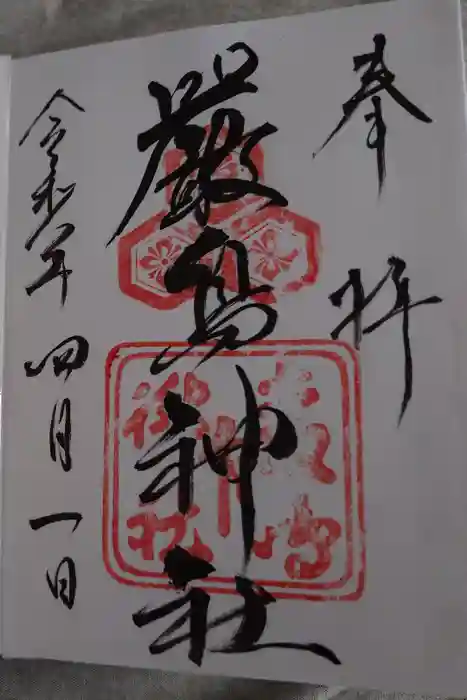 奉拝
嚴島神社
令和年四月一日